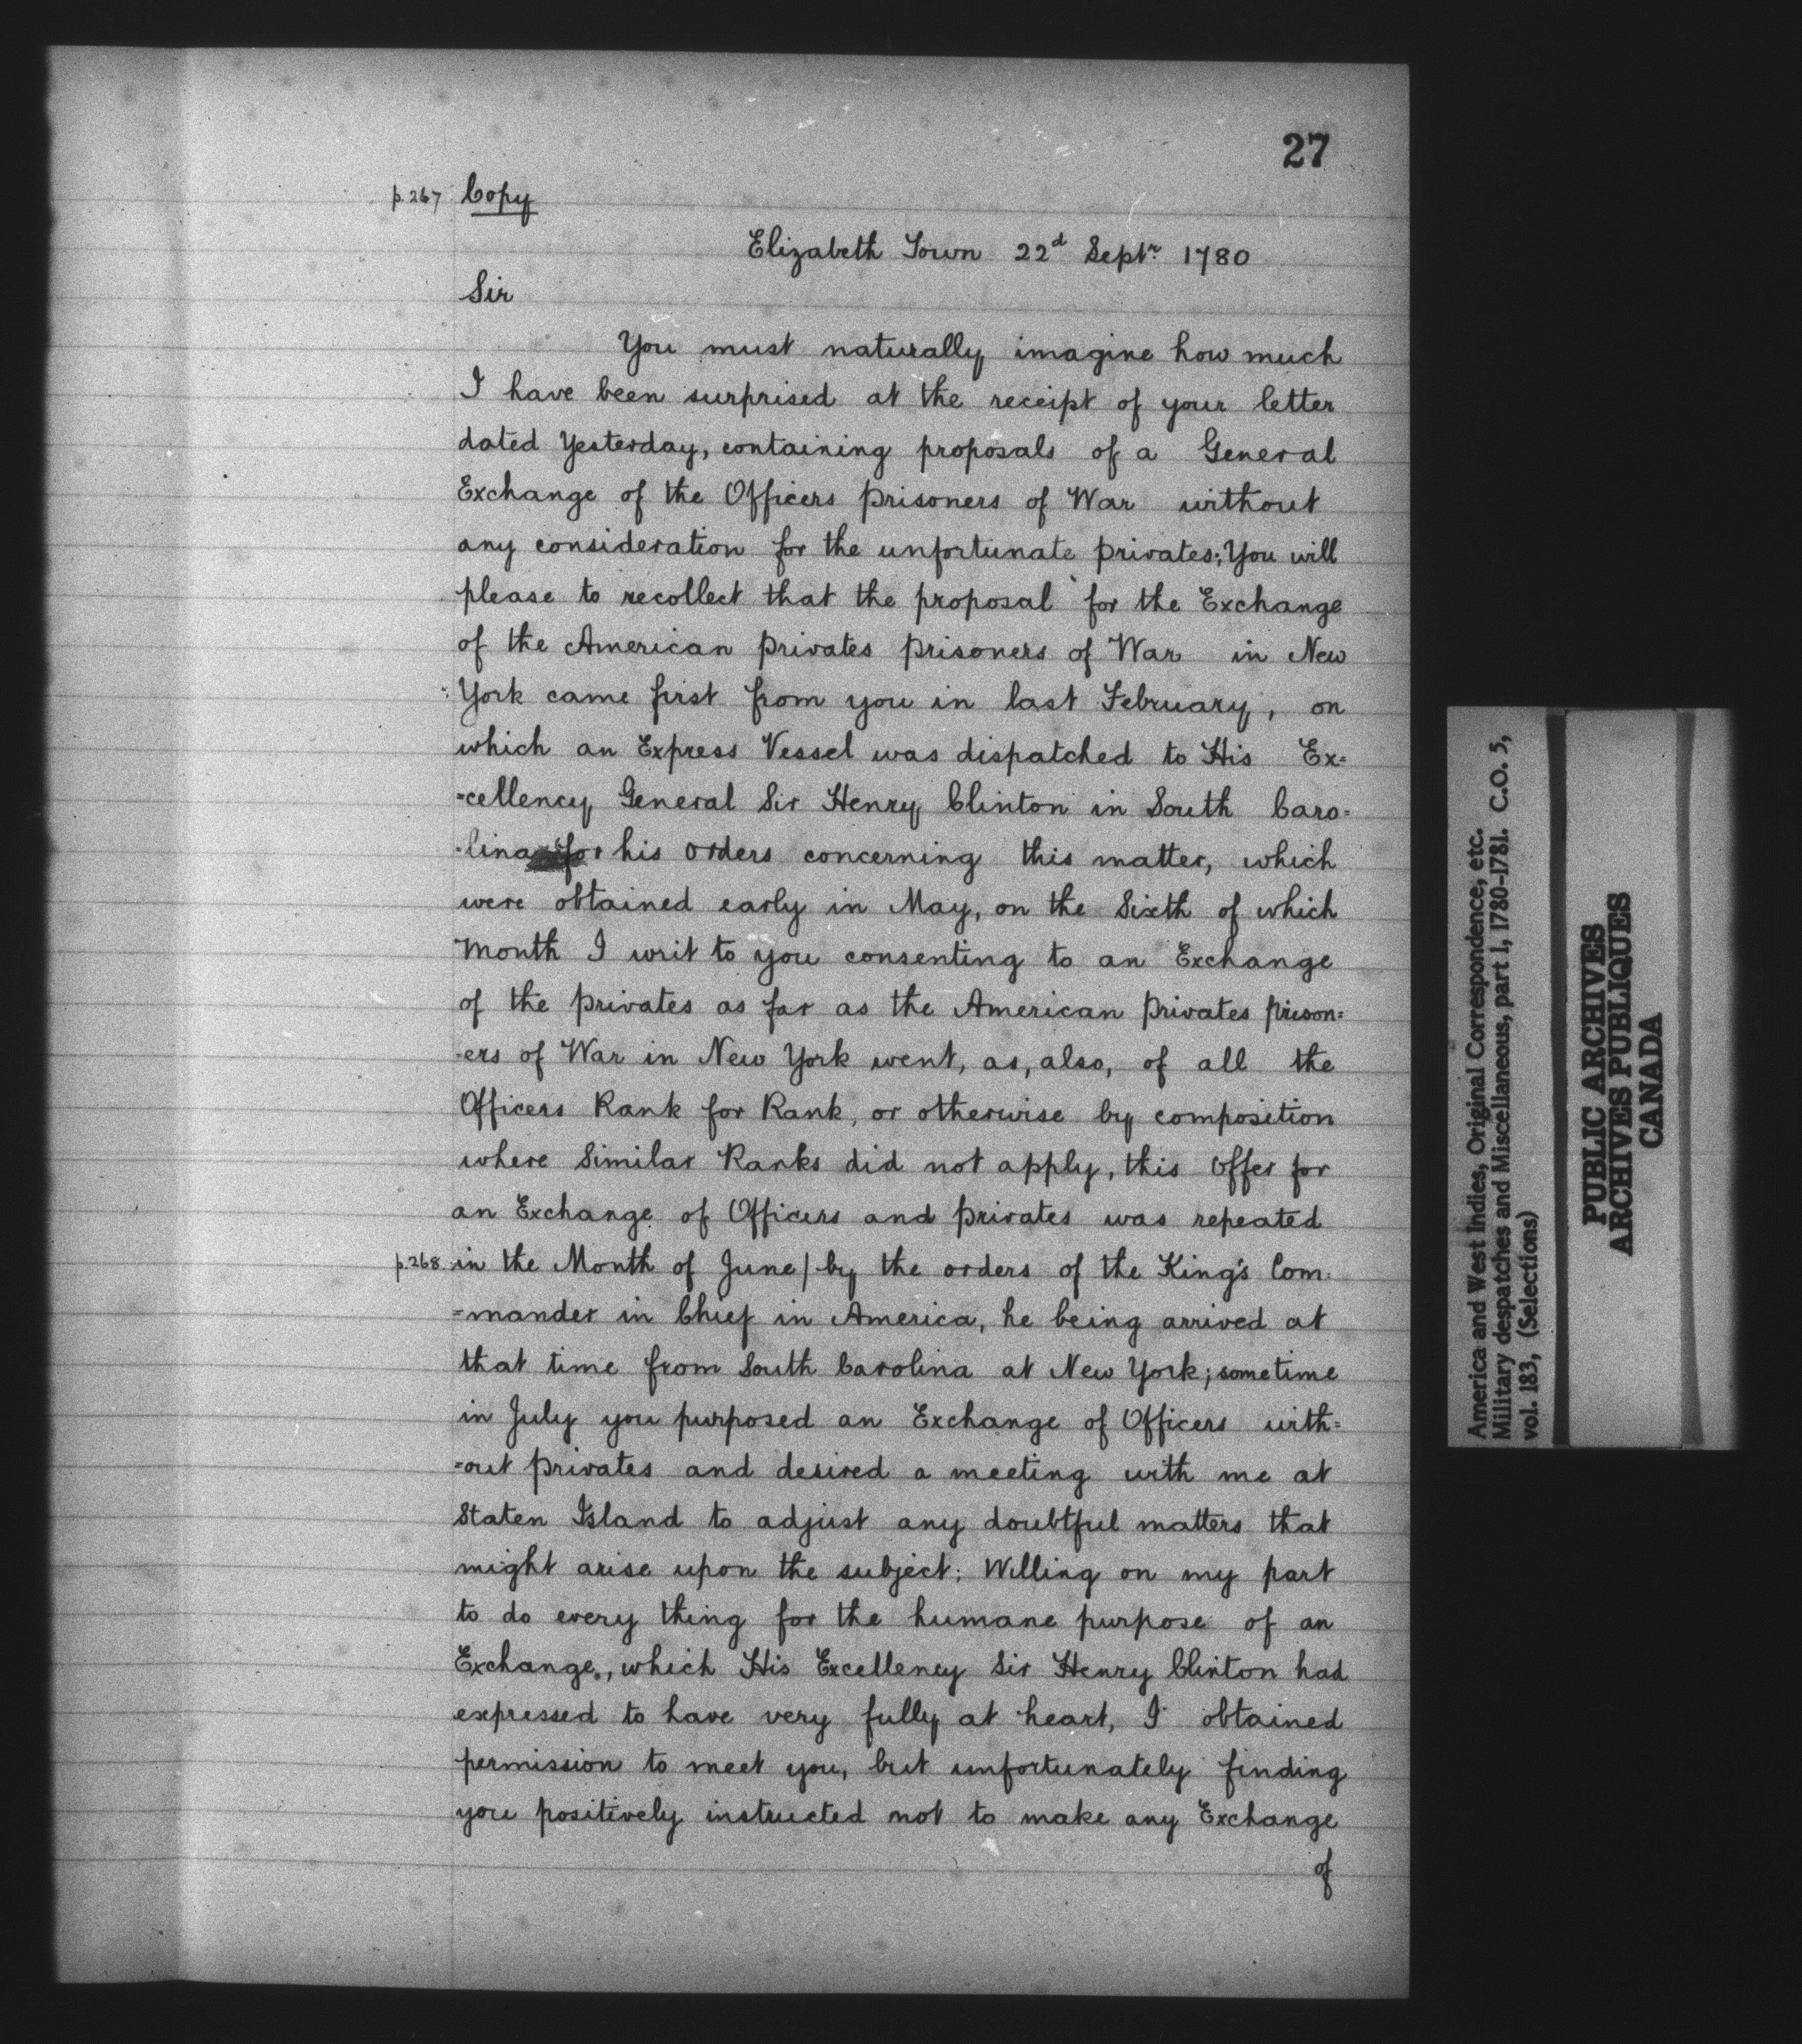 27
p.267 Copy
Elizabeth Town 22d Septr 1780
Sir
You must naturally imagine how much
I have been surprised at the receipt of your letter
dated Yesterday, containing proposals of a General
Exchange of the Officers prisoners of War without
any consideration for the unfortunate privates; You will
please to recollect that the proposal for the Exchange
of the American privates prisoners of War in New
York came first from you in last February, on
which an Express Vessel was dispatched to His Ex=
=cellency General Sir Henry Clinton in South Caro=
-lina for his orders concerning this matter, which
were obtained early in May, on the Sixth of which
Month I writ to you consenting to an Exchange
of the privates as far as the American privates prison=
-ers of War in New York went, as, also, of all the
Officers Rank for Rank, or otherwise by composition
where Similar Ranks did not apply, this Offer for
an Exchange of Officers and privates was repeated
p.268 in the Month of June/ by the orders of the King's Com=
=mander in Chief in America, he being arrived at
that time from South Carolina at New York; sometime
in July you purposed an Exchange of Officers with=
=out privates and desired a meeting with me at
Staten Island to adjust any doubtful matters that
might arise upon the subject; Willing on my part
to do every thing for the humane purpose of an
Exchange, which His Excellency Sir Henry Clinton had
expressed to have very fully at heart, I obtained
permission to meet you, but unfortunately finding
you positively instructed not to make any Exchange
of
America and West Indies, Original Correspondence, etc.
Military despatches and Miscellaneous, part 1, 1780-1781. C.O. 5,
vol. 183, (Selections)
PUBLIC ARCHIVES
ARCHIVES PUBLIQUES
CANADA